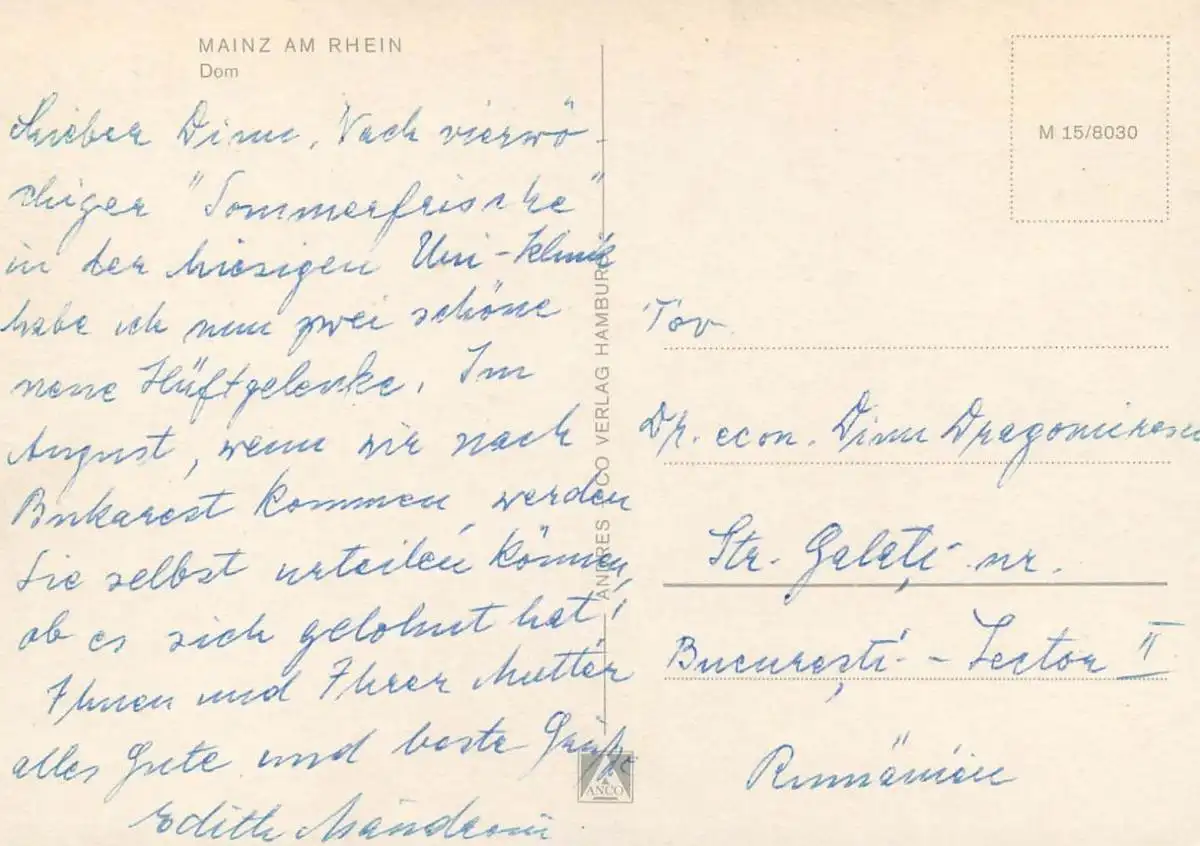 MAINZ AM RHEIN
Dom
Lieber Dinu, Nach vierwö-
chiger "Sommerfrische"
in der hiesigen Uni-Klinik
habe ich nun zwei schöne
neue Hüftgelenke. Im
August, wenn wir nach
Bukarest kommen, werden
Sie selbst urteilen können,
ob es sich gelohnt hat!
Ihnen und Ihrer Mutter
alles Gute und beste Grüße
Edith
ANDRES + CO VERLAG HAMBURG
ANCO
M 15/8030
Tov
Dr. econ. Dinu Dragomirescu
Str. Galați nr.
București - Sector II
Rumänien